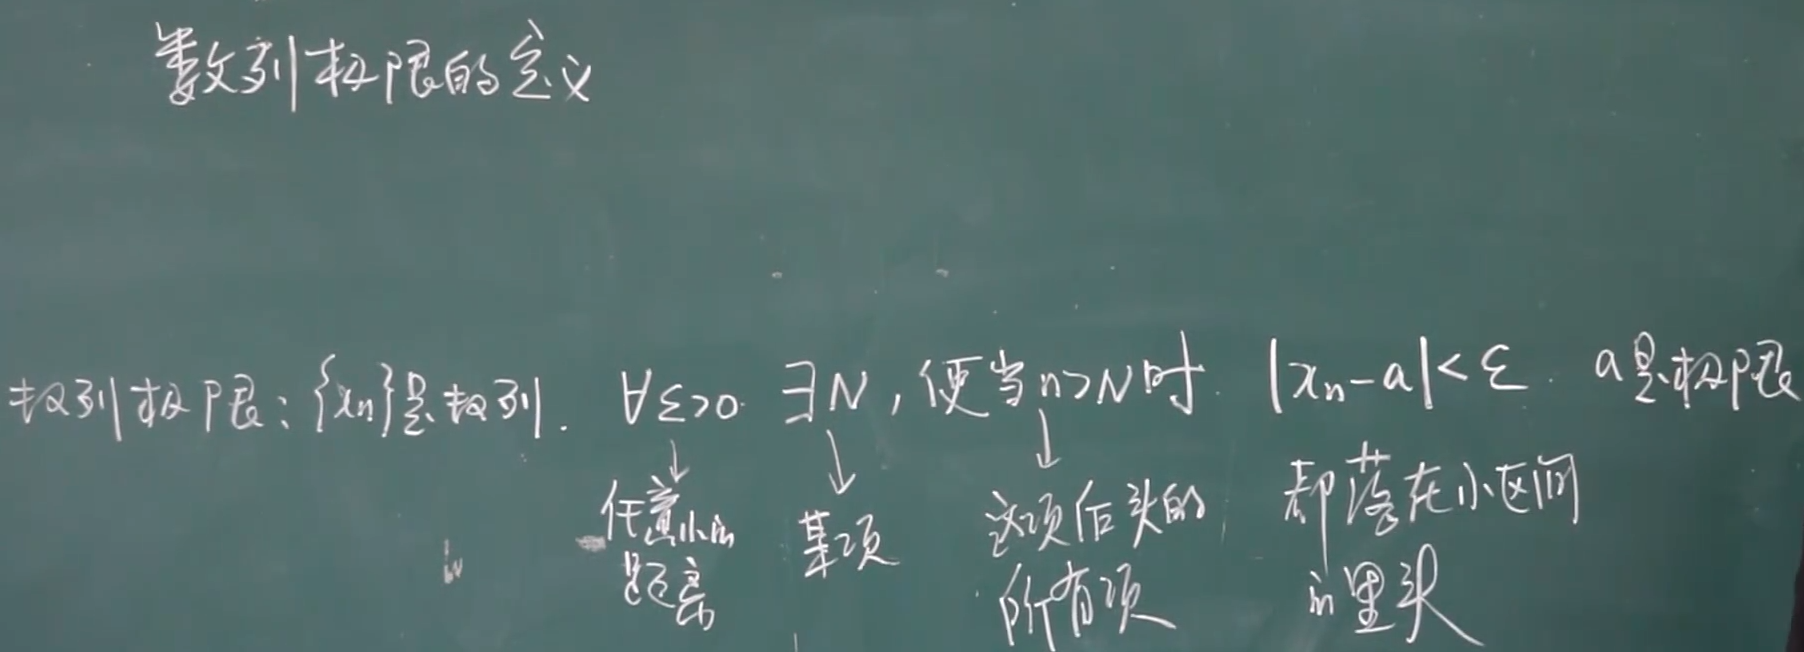 数列极限的定义
数列极限:{xn}是数列. ∀ε>0 ∃N,使当n>N时 |xn-a|<ε. a是极限
↓ ↓ ↓
任意小的 某项 这项后头的 都落在小区间
距离 所有项 的里头